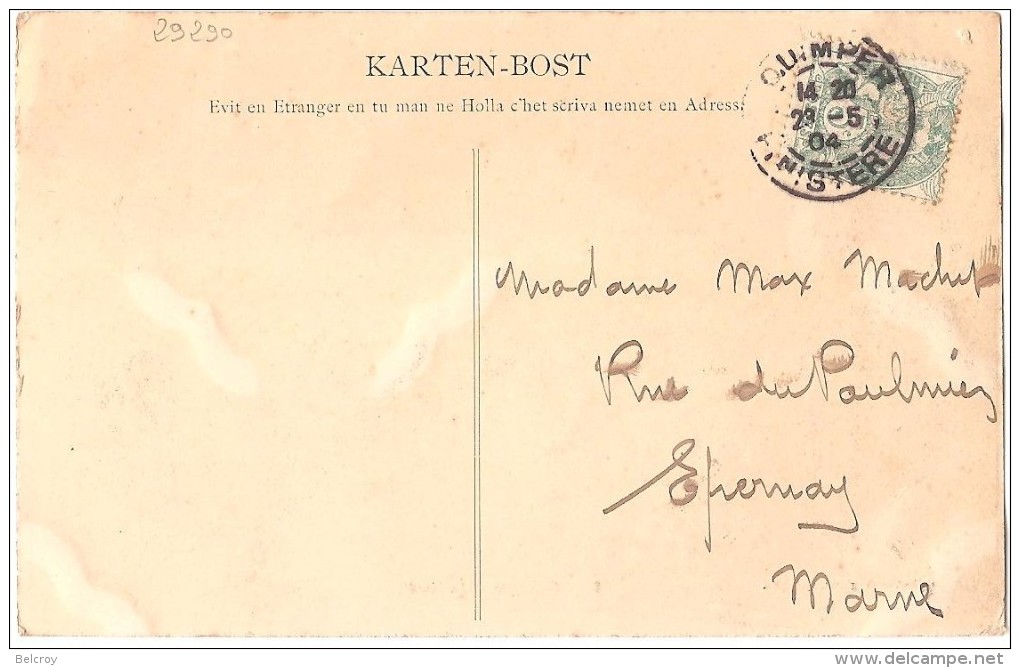 29290
KARTEN-BOST
Evit en Etranger en tu man ne Holla c'het scriva nemet en Adress.
QUIMPER
14 20
23 -5
04
FINISTERE
Madame Max Machet
Rue du Paulmiez
Epernay
Marne
Belcroy
http://www.delcampe.net